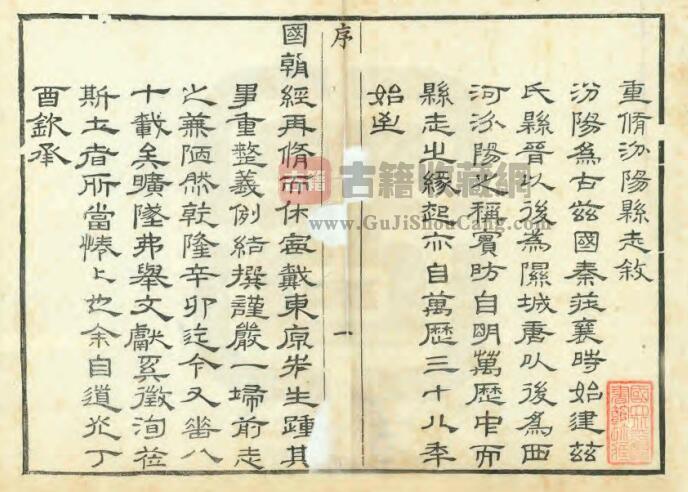 重脩汾陽縣志敘
汾陽為古茲國秦莊襄時始建茲
氏縣晉以後為隰城唐以後為西
河汾陽之稱實昉自明萬歷中而
縣志之緣起亦自萬歷三十八年
始至
序
一
國朝經再脩而休寧戴東原先生踵其
事重整義例結撰謹嚴一埽前志
之蕪陋然乾隆辛卯迄今又垂八
十載矣曠墜弗舉文獻奚徵洵莅
斯土者所當惓〻也余自道光丁
酉欽承
古籍
古籍收藏網
www.GuJiShouCang.com